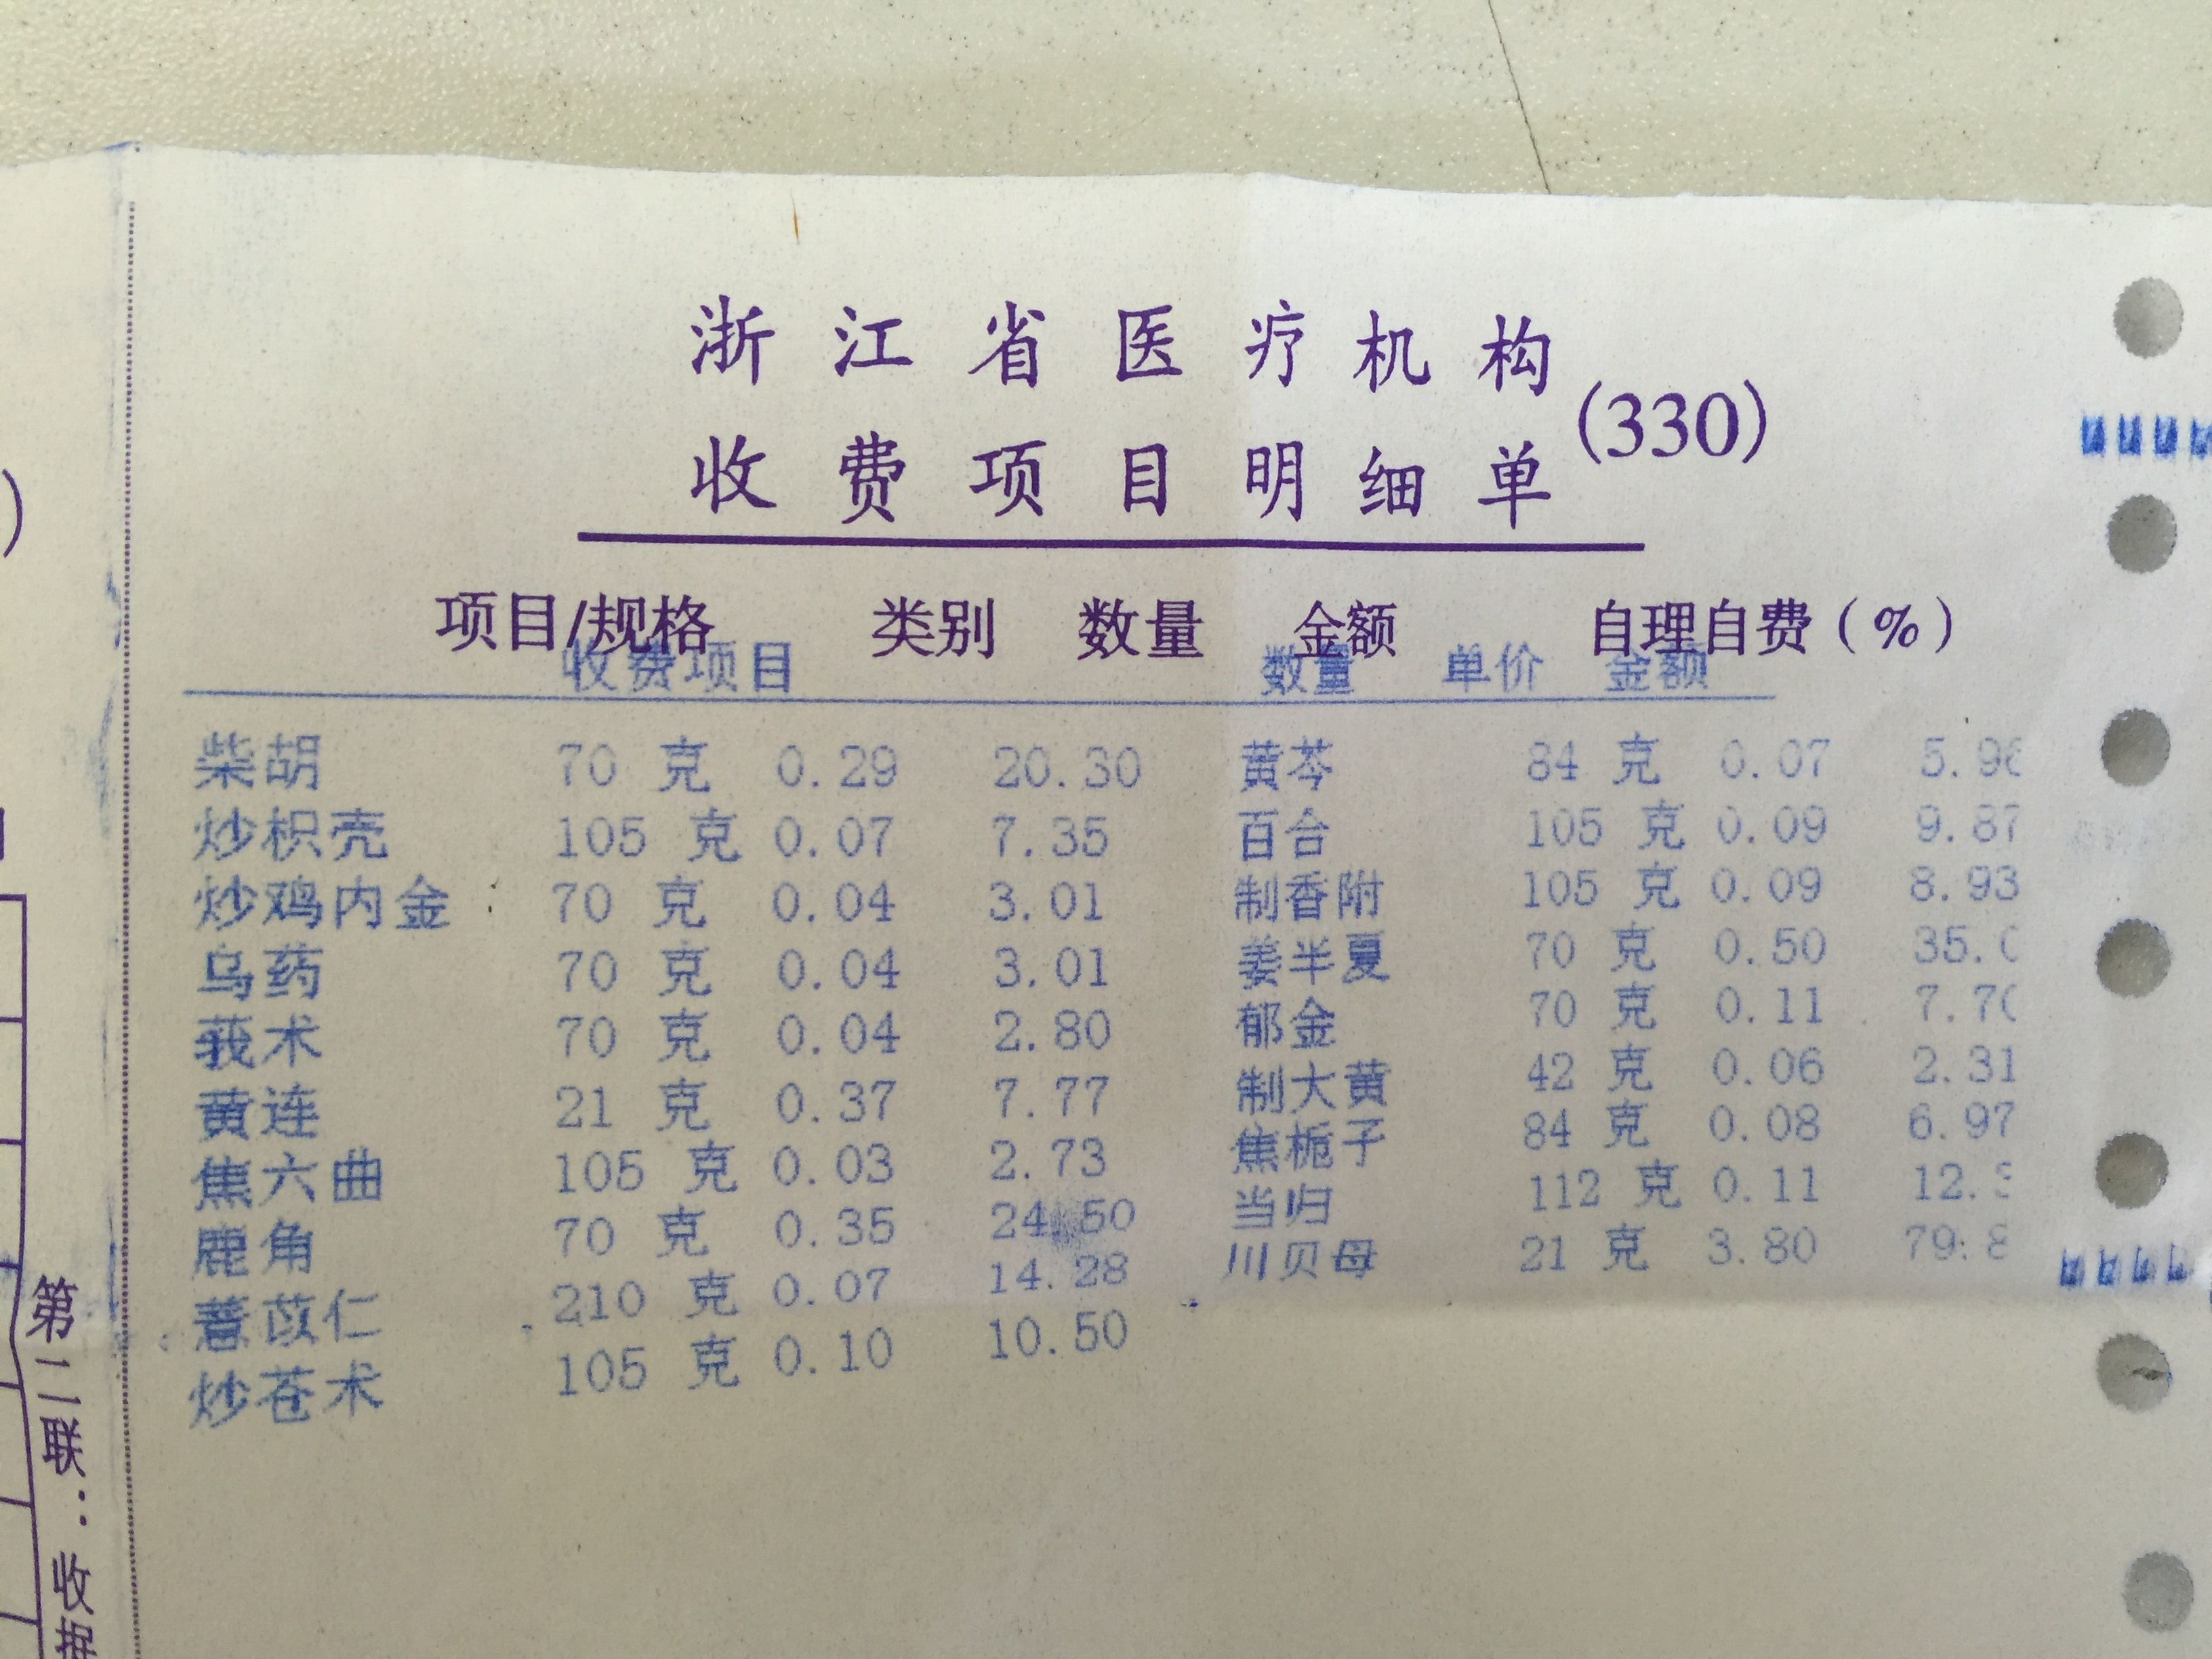 浙江省医疗机构
收费项目明细单 (330)
项目/规格 类别 数量 金额 自理自费(%)
收费项目 数量 单价 金额
柴胡 70 克 0.29 20.30 黄芩 84 克 0.07 5.96
炒枳壳 105 克 0.07 7.35 百合 105 克 0.09 9.87
炒鸡内金 70 克 0.04 3.01 制香附 105 克 0.09 8.93
乌药 70 克 0.04 3.01 姜半夏 70 克 0.50 35.0
莪术 70 克 0.04 2.80 郁金 70 克 0.11 7.70
黄连 21 克 0.37 7.77 制大黄 42 克 0.06 2.31
焦六曲 105 克 0.03 2.73 焦栀子 84 克 0.08 6.97
鹿角 70 克 0.35 24.50 当归 112 克 0.11 12.3
薏苡仁 210 克 0.07 14.28 川贝母 21 克 3.80 79.8
炒苍术 105 克 0.10 10.50
第二联：收据